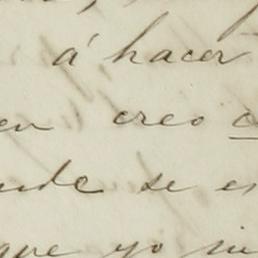 á hacer
en creo
nde se es
que yo